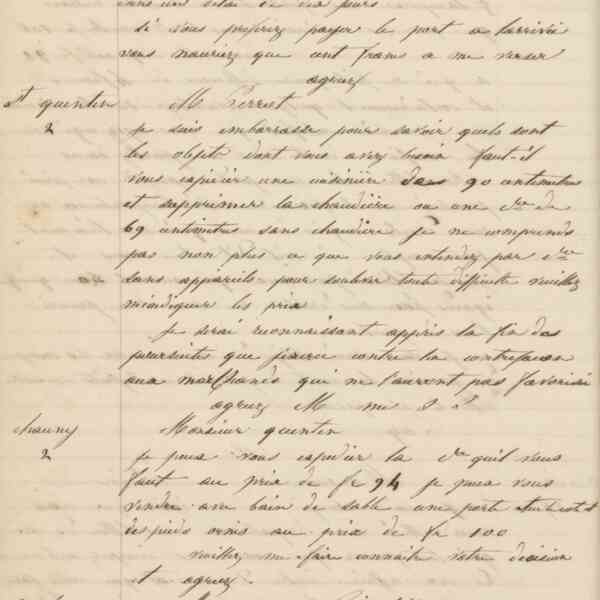 dans un délai de dix jours
si vous préférez payer le port a larrivée
vous nauriez que cent francs a me verser
agreez
St quentin M Perret
2 je suis embarrassé pour savoir quels sont
les objets dont vous avez besoin faut-il
vous expédier une cuisinière dans 90 centimètres
et supprimer la chaudière ou une c're de
69 centimètres sans chaudière je ne comprends
pas non plus ce que vous entendez par c're
sans appareils pour soulever toute difficulté veuillez
mindiquer les prix
je serai reconnaissant apprès la fin des
poursuites que jexerce contre la contrefacon
aux marchands qui ne lauront pas favorisé
agreez M me S S
chauny Monsieur quentin
2 je puis vous expédier la c're quil vous
faut au prix de fr 94 je puis vous
vendre avec bain de sable une porte et
des pieds vernis au prix de fr 100
veuillez me faire connaitre votre décision
et agreez.